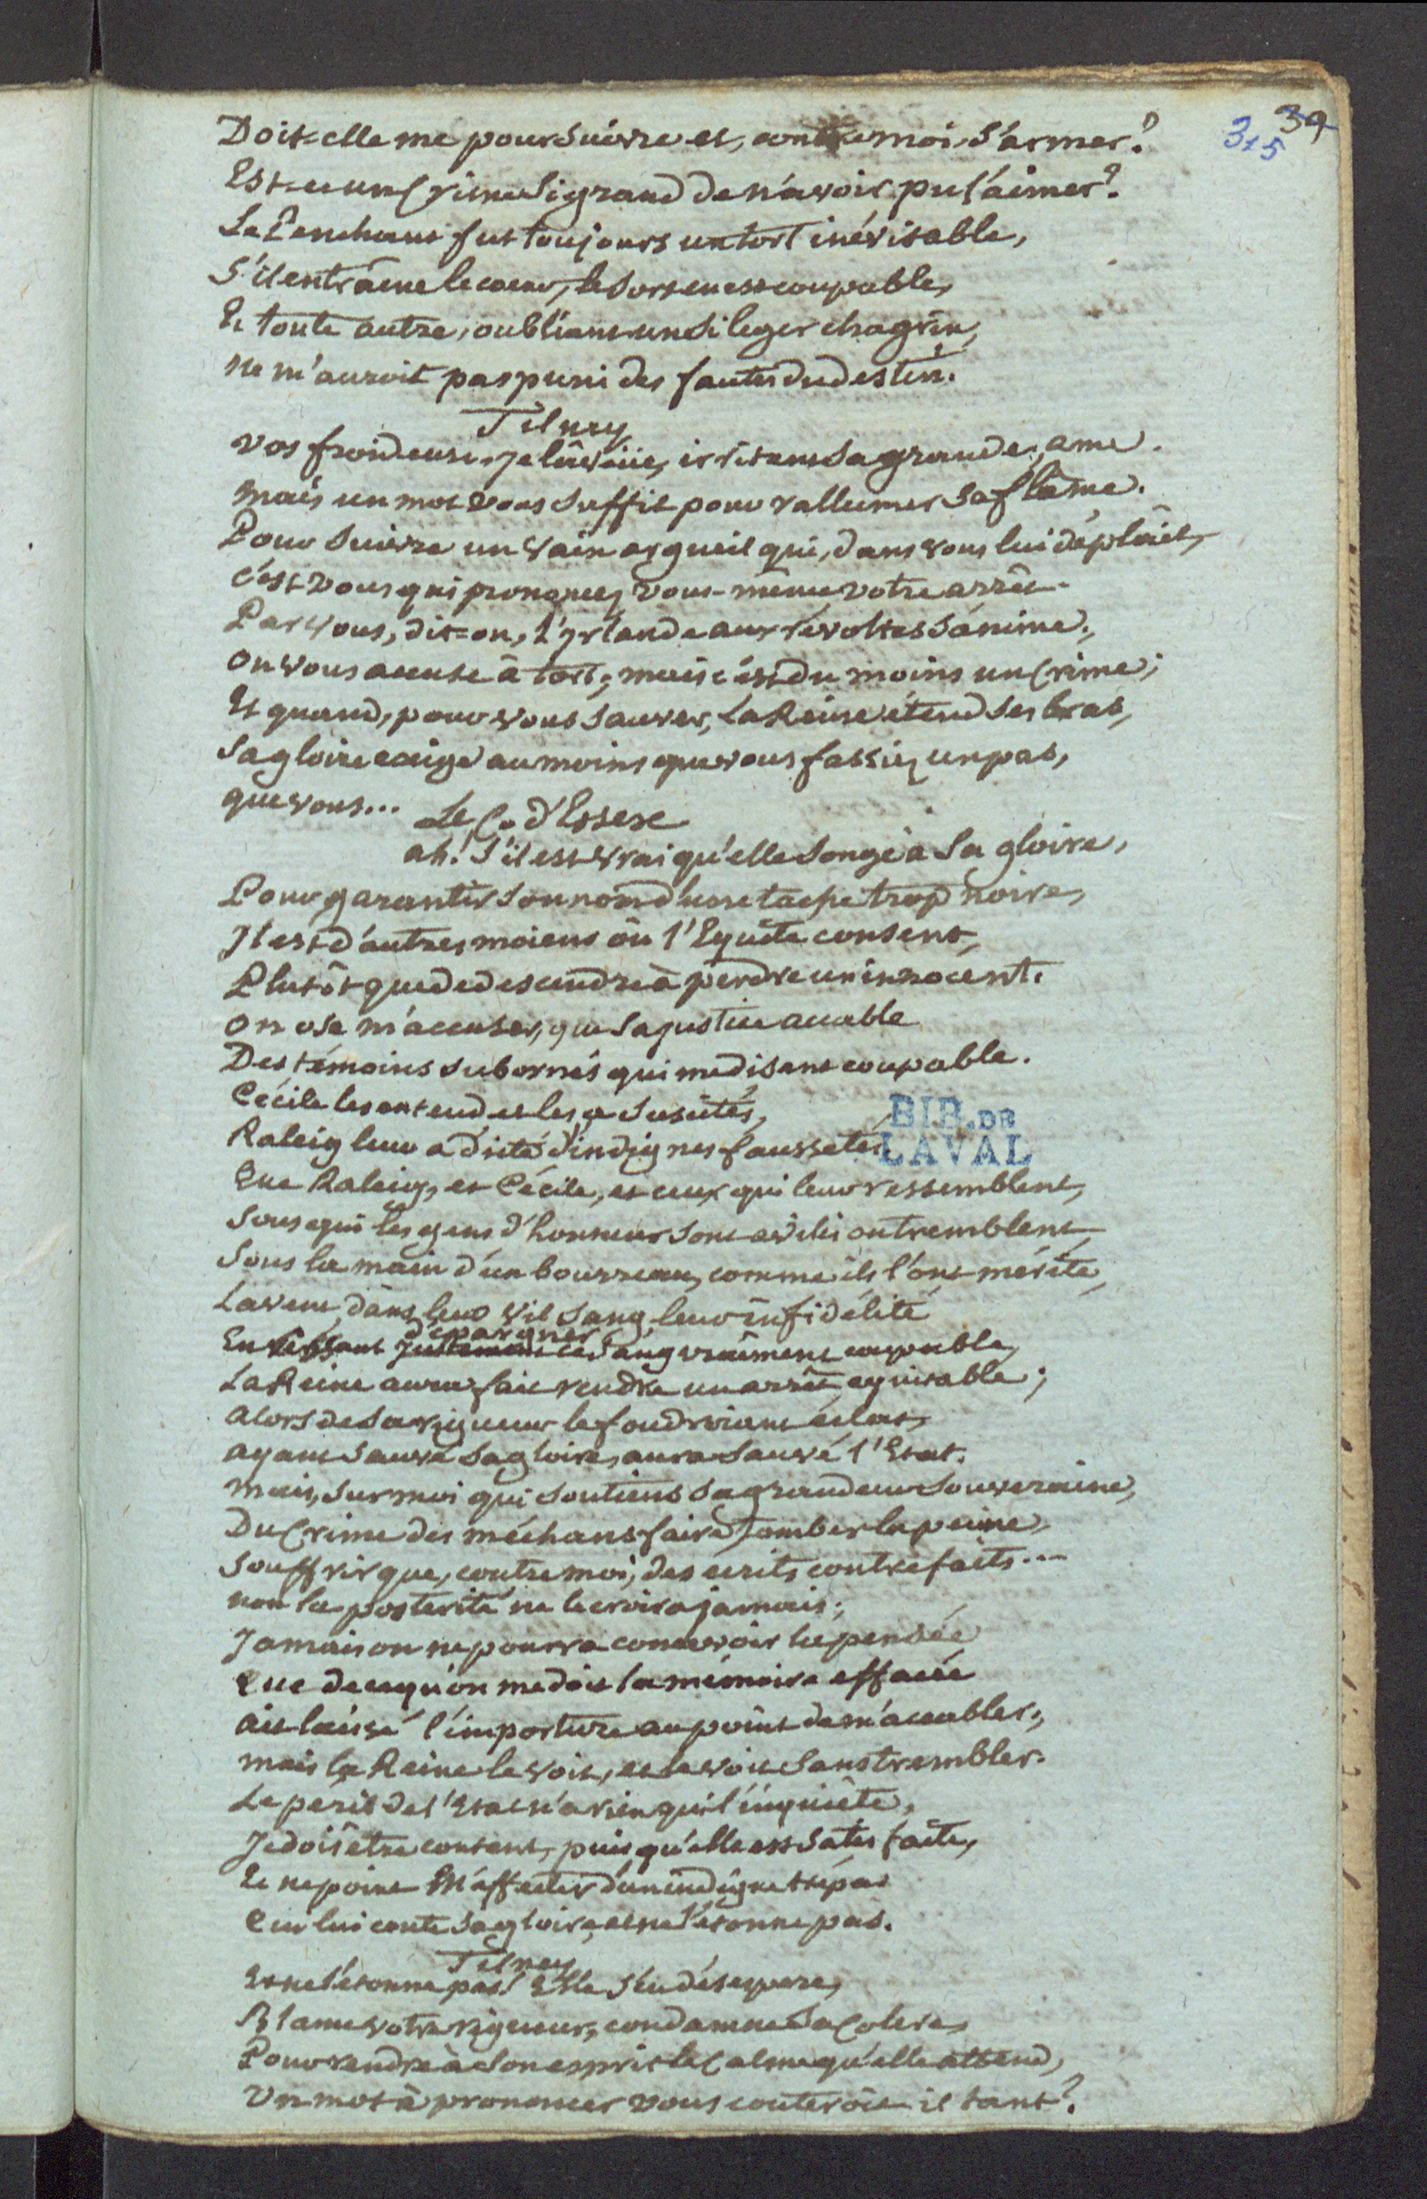 39
315
Doit-elle me poursuivre et, contre moi, s'armer?
Est-ce un Crime si grand de n'avoir pu l'aimer?
Le Penchant fut toujours un tort inévitable,
S'il entraine le coeur, le sort en est coupable,
Et toute autre, oubliant un si leger chagrin,
ne m'auroit pas puni des fautes du destin.
Tilney
vos froideurs, je l'avoüe, irritent sa grande ame.
mais un mot vous suffit pour rallumer sa flâme.
Pour suivre un vain orgueil qui, dans vous lui déplait,
c'est vous qui prononcez vous-même votre arrêt.
Par vous, dit-on, l'Yrlande aux révoltes s'anime;
on vous accuse à tort; mais c'est du moins un Crime;
Et quand, pour vous sauver, la Reine étend ses bras,
sa gloire exige au moins que vous fassiez un pas,
que vous...
Le C. d'Essex
ah! s'il est vrai qu'elle songe à sa gloire,
Pour garantir son nom d'une tache trop noire,
Il est d'autres moiens où l'Equité consent,
Plutôt que de descendre à perdre un innocent.
on ose m'accuser, que sa justice accable
Des témoins subornés qui me disent coupable.
Cécile les entend et les a suscités,
Raleig leur a dicté d'indignes faussetés
BIB. DE
LAVAL
Que Raleig, et Cécile, et ceux qui leur ressemblent,
sous qui les gens d'honneur sont avilis ou tremblent,
sous la main d'un bourreau, comme ils l'ont mérité,
Lavent, dans leur vil sang, leur infidélité
d'épargner
En versant justement ce sang vraiment coupable,
La Reine aura fait rendre un arrêt equitable;
alors de sa rigueur le foudroiant éclat,
ayant sauvé sa gloire, aura sauvé l'Etat.
mais, sur moi qui soutiens sa grandeur souveraine,
Du Crime des méchans faire tomber la peine,
souffrir que, contre moi, des ecrits contrefaits...
non la posterité ne le croira jamais;
Jamais on ne pourra concevoir la pensée
Que de ce qu'on me doit la mémoire effacée
ait laissé l'imposture au point de m'accabler;
mais la Reine le voit, et le voit sans trembler.
Le peril de l'Etat n'a rien qui l'inquiéte,
Je dois être content, puis qu'elle est satisfaite,
Et ne point m'affecter d'un indigne trépas
Qui lui coute sa gloire, et ne l'etonne pas.
Tilney
Et ne l'etonne pas! Elle s'en désespere,
Blame votre rigueur, condamne sa Colere,
Pour rendre à son esprit le Calme qu'elle attend,
Un mot à prononcer vous couteroit-il tant?